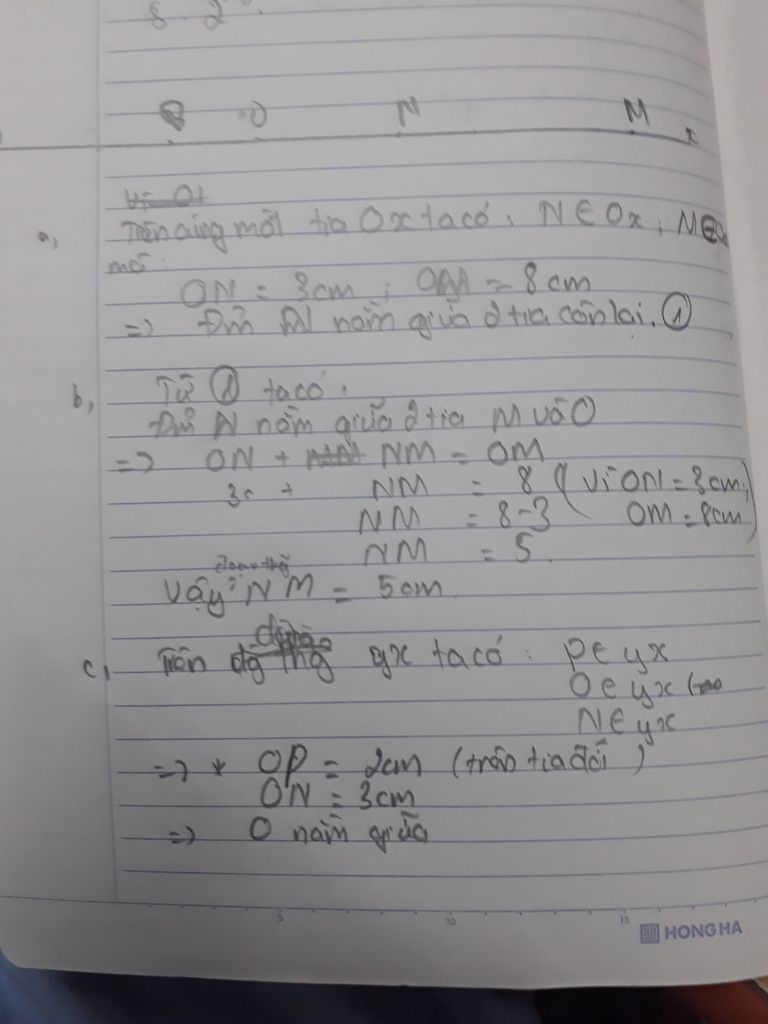 8 2
O N M x
Vì Ot
a, Trên cùng một tia Ox ta có: N ∈ Ox; M ∈ Ox
mà:
ON = 3cm; OM = 8cm
=> Điể N nằm giữa 2 tia còn lại. ①
b, Từ ① ta có:
Điể N nằm giữa 2 tia M và O
=> ON + NM = OM
3 + NM = 8 (Vì ON = 3cm;
NM = 8-3 OM = 8cm)
NM = 5.
đoạn thg
Vậy NM = 5cm
c, Trên đg thg yx ta có: P ∈ yx
O ∈ yx
N ∈ yx
=> * OP = 2cm (trên tia đối)
ON = 3cm
=> O nằm giữa
5 10 15
HONG HA